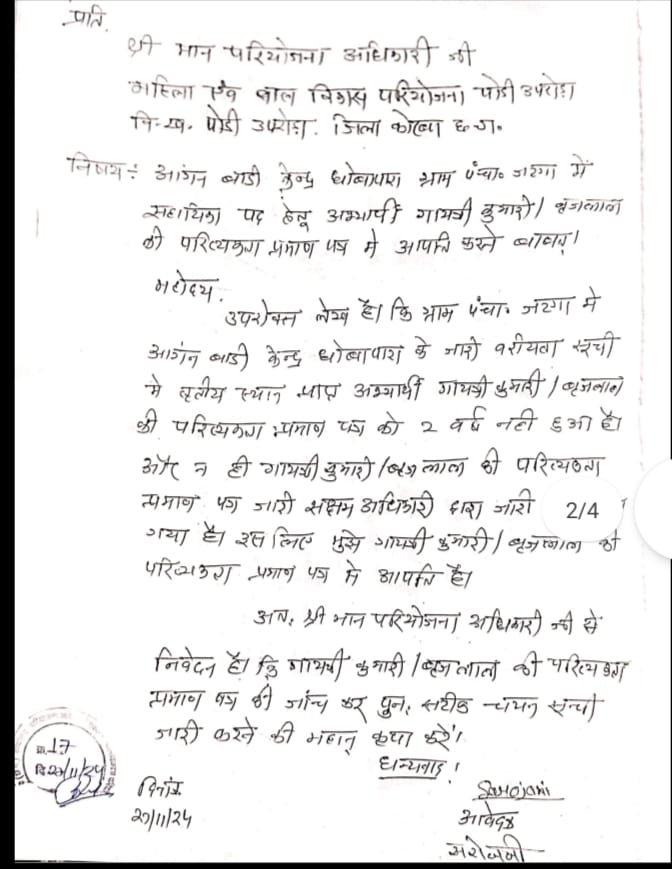 प्रति,
श्री मान परियोजना अधिकारी जी
महिला एवं बाल विकास परियोजना पोडी उपरोडा
वि-ख. पोडी उपरोडा. जिला कोरबा छ.ग.
विषय: आंगन बाडी केन्द्र धोबापारा ग्राम पंचा. जटगा में
सहायिका पद हेतू अभ्यार्थी गायत्री कुमारी / बृजलाल
की परित्यकता प्रमाण पत्र मे आपत्ति करने बाबत्।
महोदय,
उपरोक्त लेख है। कि ग्राम पंचा. जटगा मे
आगंन बाडी केन्द्र धोबापारा के जारी वरीयता सूची
मे तृतीय स्थान प्राप्त अभ्यार्थी गायत्री कुमारी / बृजलाल
की परित्यकता प्रमाण पत्र को 2 वर्ष नही हुआ है।
और न ही गायत्री कुमारी / बृजलाल की परित्यकता
प्रमाण पत्र जारी सक्षम अधिकारी द्वारा जारी 2/4
गया है। इस लिए मुझे गायत्री कुमारी / बृजलाल की
परित्यकता प्रमाण पत्र मे आपत्ति है।
अत: श्री मान परियोजना अधिकारी जी से
निवेदन है। कि गायत्री कुमारी / बृजलाल की परित्यकता
प्रमाण पत्र की जांच कर पुन: सटीक चयन सूची
जारी करने की महान् कृपा करें।
धन्यवाद!
क्र. 17
दि 20/11/24
दिनांक
20/11/24
Sarojani
आवेदक
सरोजनी